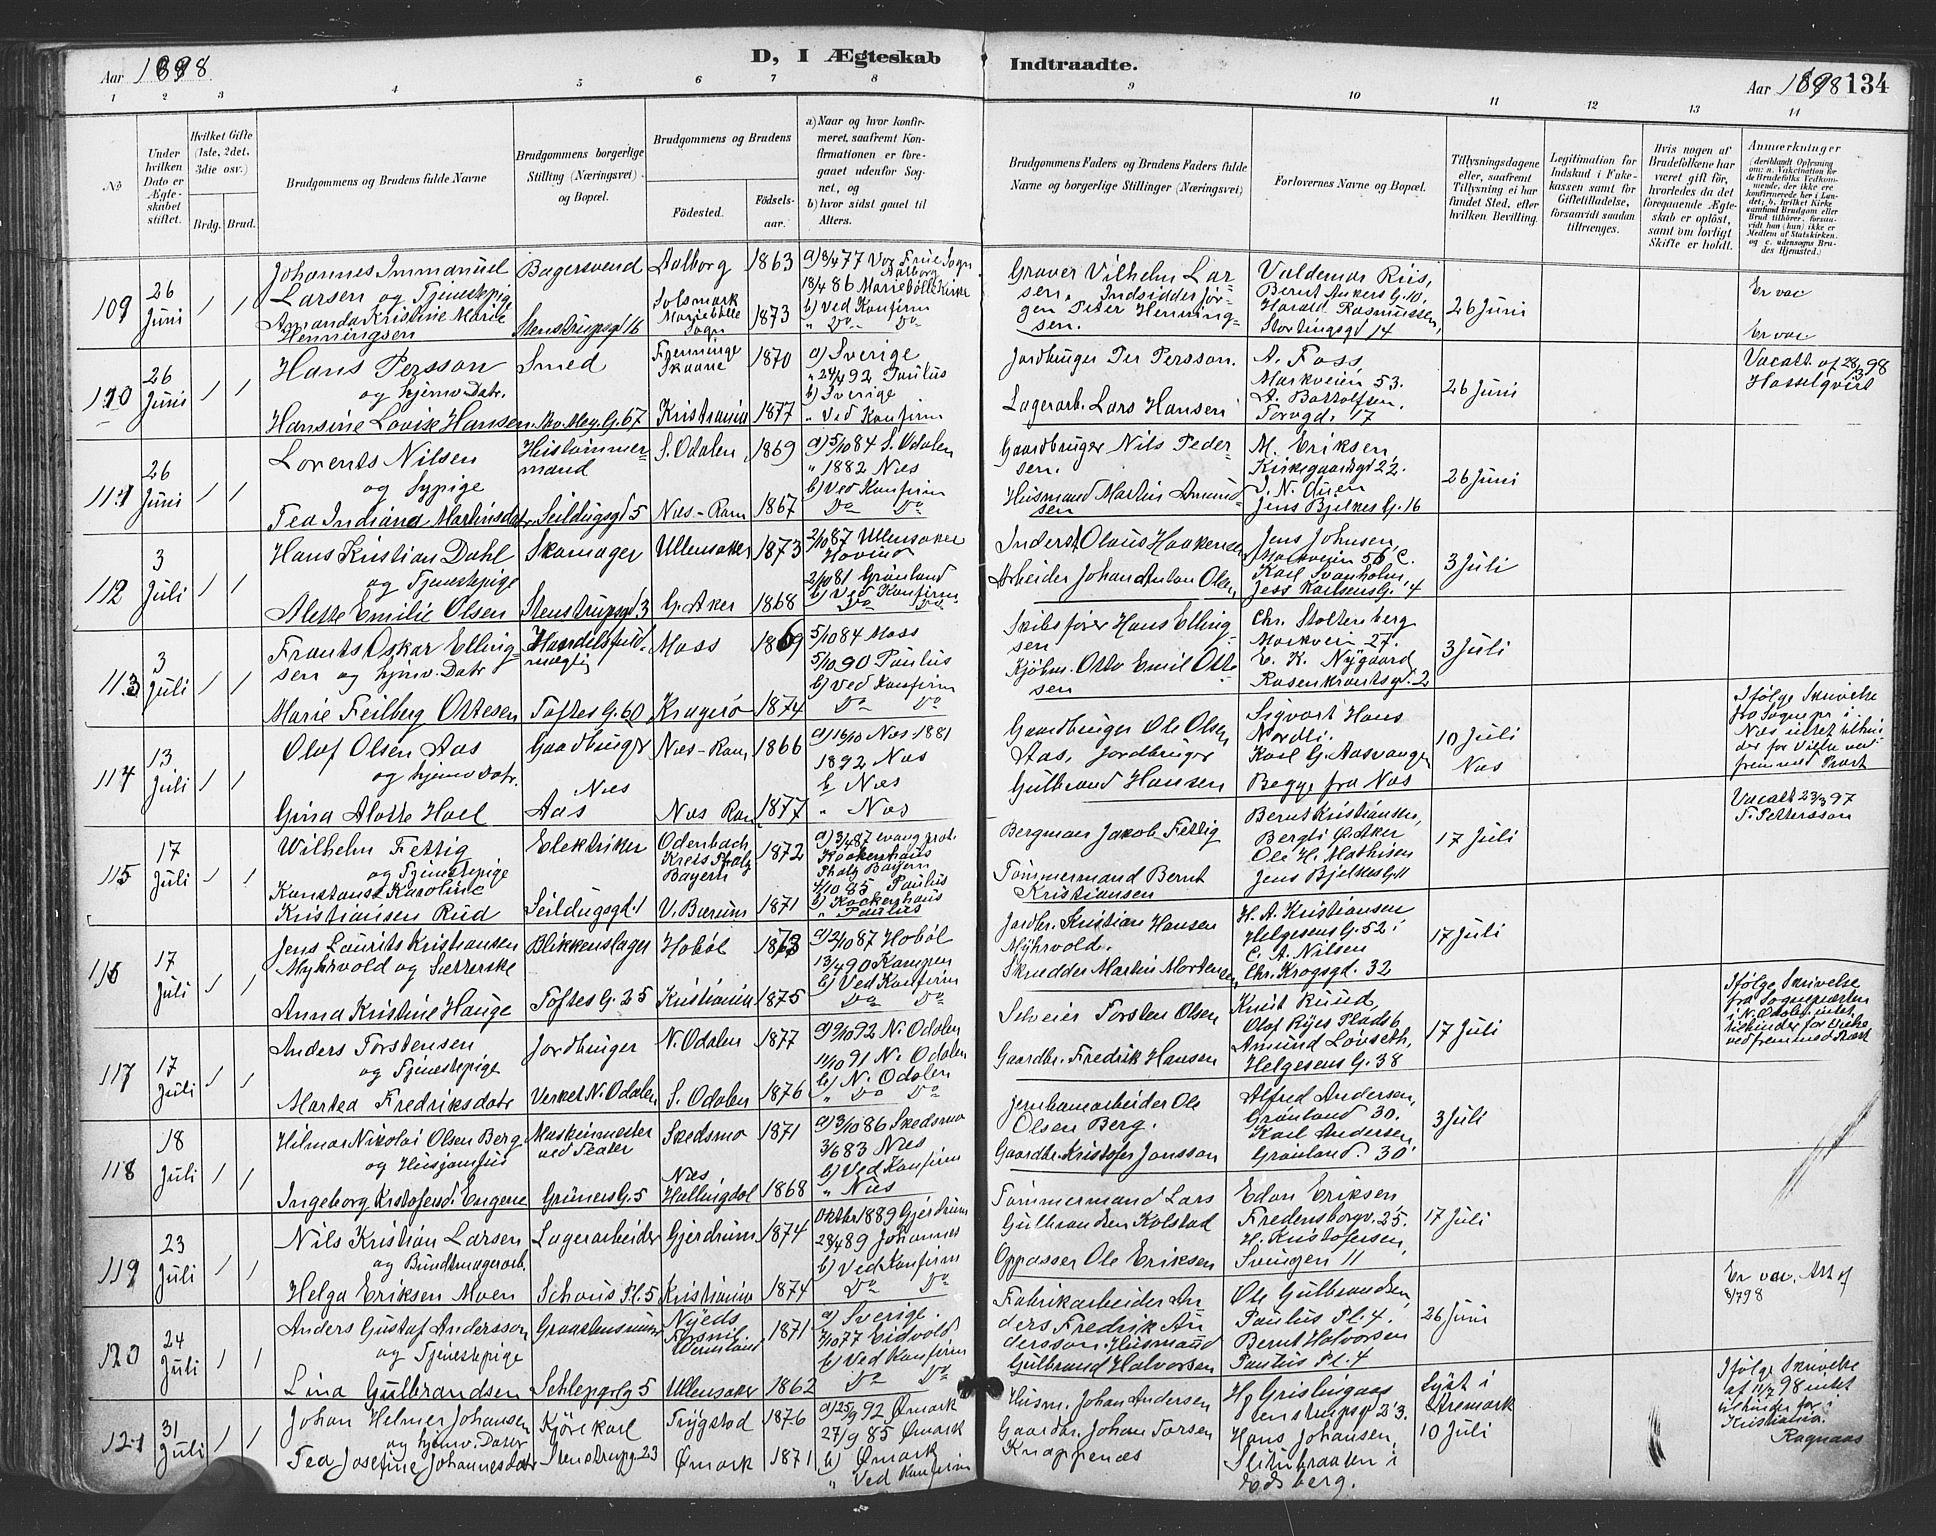 Aar 1898
D, I Ægteskab Indtraadte.
Aar 1898 134
1 2 3 4 5 6 7 8 9 10 11 12 13 14
No
Under hvilken Dato er Ægteskabet stiftet.
Hvilket Gifte (1ste, 2det, 3die osv.)
Brdg. Brud.
Brudgommens og Brudens fulde Navne
Brudgommens borgerlige Stilling (Næringsvei) og Bopæl.
Brudgommens og Brudens
Fødested.
Fødselsaar.
a) Naar og hvor konfirmeret, saafremt Konfirmationen er foregaaet udenfor Sognet, og
b) hvor sidst gaaet til Alters.
Brudgommens Faders og Brudens Faders fulde Navne og borgerlige Stillinger (Næringsvei)
Forlovernes Navne og Bopæl.
Tillysningsdagene eller, saafremt Tillysning ei har fundet Sted, efter hvilken Bevilling.
Legitimation for Indskud i Fakekassen samt for Giftetilladelse, forsaavidt saadan tiltrænges.
Hvis nogen af Brudefolkene har været gift før, hvorledes da det foregaaende Ægteskab er opløst, samt om lovligt Skifte er holdt.
Anmærkninger
109 26 Juni 1 1
Johannes Immanuel Larsen og Tjenestepige
Amanda Kristine Marie Henningsen
Bagersvend
Stenstrupsgd 16
Aalborg 1863
Solsmark Mariebölle Sogn 1873
a) 8/4 77 Vor Frue Sogn Aalborg
18/4 86 Mariebölle Kirke
b) Ved Konfirm
" Do Do
Graver Vilhelm Larsen. Indsidder Jörgen Peter Henningsen.
Valdemar Riis, Bernt Ankers G. 10,
Harald Rasmussen, Stortingsgd 14
26 Juni
Er vac
Er vac
110 26 Juni 1 1
Hans Persson
og hjemv. Datr.
Hansine Lovise Hansen
Smed
Skaane 1870
Kristiania 1877
a) Sverige
" 24/4 92 Paulus
b) Sverige
" Ved Konfirm
Jordbruger Per Persson.
Lagerarb. Lars Hansen
A. Foss Markveien 53.
A. Bottolfsen. Torvgd. 17
26 Juni
Vacatt. af 28/3 98
Hasselqvist
111 26 Juni 1 1
Lorents Nilsen
og Sypige
Tea Indiana Martinsdatr
Seildugsgd 5
S. Odalen 1869
Næs-Rom 1867
a) 5/10 84 S. Odalen
" 1882 Næs
b) Ved Konfirm
Do Do
Gaardbruger Nils Pedersen.
Husmand Martin Amundsen
M. Eriksen, Kirkegaardsgd 22.
Jens Bjelkes G. 16
26 Juni
112 3 Juli 1 1
Hans Kristian Dahl
og Tjenestepige
Alette Emilie Olsen
Skomager
Stenstrupsgd 3
Ullensaker 1873
G. Aker 1868
2/10 87 Ullensaker Hovind
2/10 81 Grønland
b) Ved Konfirm
Do Do
Inderst Olaus Haakensen
Arbeider Johan Anton Olsen,
Jens Johnsen, Markveien 56 C.
Karl Svanholm, Jess Karlsens G. 4
3 Juli
113 3 Juli 1 1
Frants Oskar Ellingsen og hjemv. Datr
Marie Feilberg Ottesen
Handelsfuldmægtig
Toftes G. 60
Moss 1869
Kragerö 1874
5/10 84 Moss
5/10 90 Paulus
b) Ved Konfirm
Do Do
Skibsförer Hans Ellingsen
Kjöbm. Otto Emil Ottesen
Chr. Stoltenberg Markvein 27.
E. K. Nygaard Rosenkrantsgd. 2
3 Juli
114 13 Juli 1 1
Olaf Olsen Aas
og hjemv Datr.
Gina Alette Hoel
Gaardbruger
Næs
Aas
Næs-Rom 1866
Næs Rom 1877
a) 16/10 Næs 1881
1892 Næs
b Næs
" Næs
Gaardbruger Ole Olsen Aas, Jordbruger
Gulbrand Hansen
Sigvart Hans Nordli.
Karl G. Aasvangen
Begge fra Næs
10 Juli Næs
Ifølge Skrivelse fra Sognepr. i Næs intet tilhinder for Vilse ved fremmed Præst
115 17 Juli 1 1
Wilhelm Fettig
og Tjenestepige
Konstanse Karoline Kristiansen Rud
Elektriker
Seildugsgd. 1
Odenbach Kreis Pfalz Bayern 1872
V. Bærum 1871
Pfalz Bayern
4/10 85 Paulus
" Paulus
Bergman Jakob Fettig
Tömmermand Bernt Kristiansen
Bernt Kristiansen,
Ole H. Mathisen Jens Bjelkes G. 11
17 Juli
Vacatt 23/3 97
T. Pettersson
116 17 Juli 1 1
Jens Laurits Kristiansen Myhrvold og Sætterske
Anna Kristine Hauge
Blikkenslager
Toftes G. 25
Hobøl 1873
Kristiania 1875
a) 2/10 87 Hobøl
13/4 90 Kampen
b) Ved Konfirm
Do Do
Jordbr. Kristian Hansen Myhrvold.
Skrædder Martin Mortensen,
H. A. Kristiansen Helgesens G. 52.
C. A. Nilsen Chr. Krogsgd. 32
17 Juli
117 17 Juli 1 1
Anders Torstensen
og Tjenestepige
Martea Fredriksdatr
Jordbruger
Verket N. Odalen,
N. Odalen 1877
S. Odalen 1876
a) 9/10 92 N. Odalen
11/10 91 N. Odalen
b) N. Odalen
" Do Do
Selveier Torsten Olsen
Gaardbr. Fredrik Hansen
Knut Ruud, Olaf Ryes Plads 6
Amund Lövseth, Helgesens G. 38
17 Juli
Ifølge Skrivelse fra Sognepræsten i N. Odalen intet tilhinder for Vielse ved fremmed Præst
118 18 Juli 1 1
Hilmar Nikolai Olsen Berg
og Husjomfru
Ingeborg Kristofersdr. Engene
Maskinmester ved Teater
Grüners G. 5
Skedsmo 1871
Næs Hallingdal 1868
a) 3/10 86 Skedsmo
3/6 83 Næs
b) Ved Konfirm
" Næs
Jernbanearbeider Ole Olsen Berg.
Gaardbr. Kristofer Jonsson
Alfred Andersen, Grønland 30.
Karl Andersen, Grønland. 30
3 Juli
119 23 Juli 1 1
Nils Kristian Larsen
og Bundtmagerarb.
Helga Eriksen Moen
Lagerarbeider
Schous Pl. 5
Gjerdrum 1874
Kristiania 1874
Oktbr 1889 Gjerdrum
28/4 89 Johannes
b) Ved Konfirm
Do Do
Tømmermand Lars Gulbrandsen Kolstad
Oppasser Ole Eriksen
Edon Eriksen Fredensborgv. 25.
H. Kristofersen, Svingen 11
17 Juli
120 24 Juli 1 1
Anders Gustaf Andersson
og Tjenestepige
Lina Gulbrandsen
Schleppegr.G. 5
Nyeds Wermland 1871
Ullensaker 1862
a) Sverige.
7/10 77 Eidsvold
b) Ved Konfirm
Do Do
Fabrikarbeider Anders Fredrik Andersson. Husmand
Gulbrand Halvorsen
Ole Gulbrandsen, Paulus Pl. 4.
Bernt Halvorsen Paulus Pl. 4
26 Juni
Er vac. Att af 8/7 98
121 31 Juli 1 1
Johan Helmer Johansen
og hjemv. Dater
Tea Josefine Johannesdatr
Kjörekarl
Stenstrupg. 23
Trygstad 1876
Ømark 1871
a) 25/9 92 Ømark
27/9 85 Ømark
b) Ømark
" Ved Konfirm
Husm. Johan Andersen
Gaardbr. Johan Torsen Knappenæs
Stenstrupsgd 23.
Hans Johansen, Slitubraaten i Edsberg.
Lyst i Aremark 10 Juli
Ifølge Skrivelse af 11/7 98 intet tilhinder for Kristiania.
Ragnaas